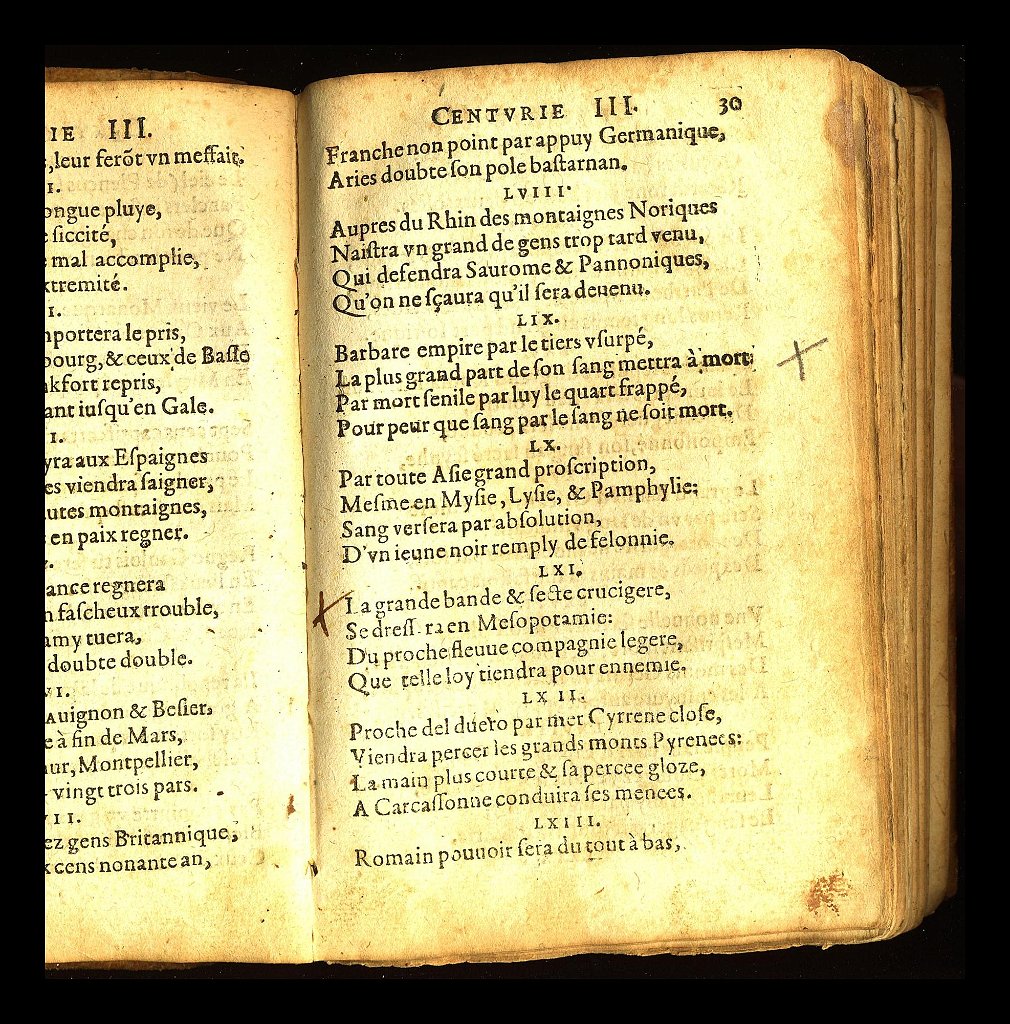 IE III.
, leur ferõt vn meſſait.
I.
ongue pluye,
ſiccité,
mal accomplie,
xtremité.
I.
mportera le pris,
bourg, & ceux de Baſle
nkfort repris,
ant iuſqu'en Gale.
I.
yra aux Eſpaignes
es viendra ſaigner,
autes montaignes,
en paix regner.
ance regnera
n faſcheux trouble,
amy tuera,
doubte double.
VI.
Auignon & Beſier,
e à fin de Mars,
ur, Montpellier,
vingt trois pars.
VII.
ez gens Britannique,
x cens nonante an,
CENTVRIE III. 30
Franche non point par appuy Germanique,
Aries doubte ſon pole baſtarnan.
LVIII.
Aupres du Rhin des montaignes Noriques
Naiſtra vn grand de gens trop tard venu,
Qui defendra Saurome & Pannoniques,
Qu'on ne ſçaura qu'il ſera deuenu.
LIX.
Barbare empire par le tiers vſurpé,
La plus grand part de ſon ſang mettra à mort:
Par mort ſenile par luy le quart frappé,
Pour peur que ſang par le ſang ne ſoit mort.
LX.
Par toute Aſie grand proſcription,
Meſme en Myſie, Lyſie, & Pamphylie:
Sang verſera par abſolution,
D'vn ieune noir remply de felonnie.
LXI.
La grande bande & ſecte crucigere,
Se dreſſ ra en Meſopotamie:
Du proche fleuue compagnie legere,
Que telle loy tiendra pour ennemie.
LXII.
Proche del duero par mer Cyrrene cloſe,
Viendra percer les grands monts Pyrenees:
La main plus courte & ſa percee gloze,
A Carcaſſonne conduira ſes menees.
LXIII.
Romain pouuoir ſera du tout à bas,